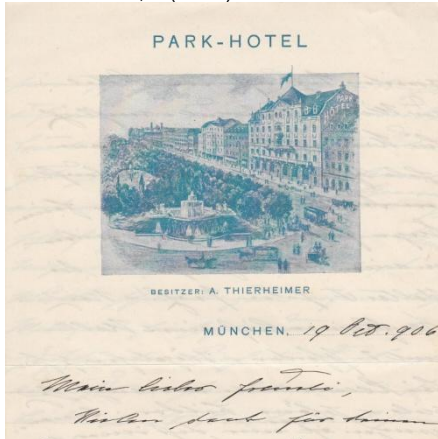 PARK-HOTEL
PARK
HOTEL
BESITZER: A. THIERHEIMER
MÜNCHEN, 19 Oct. 906
Mein lieber
Vielen Dank für deinen